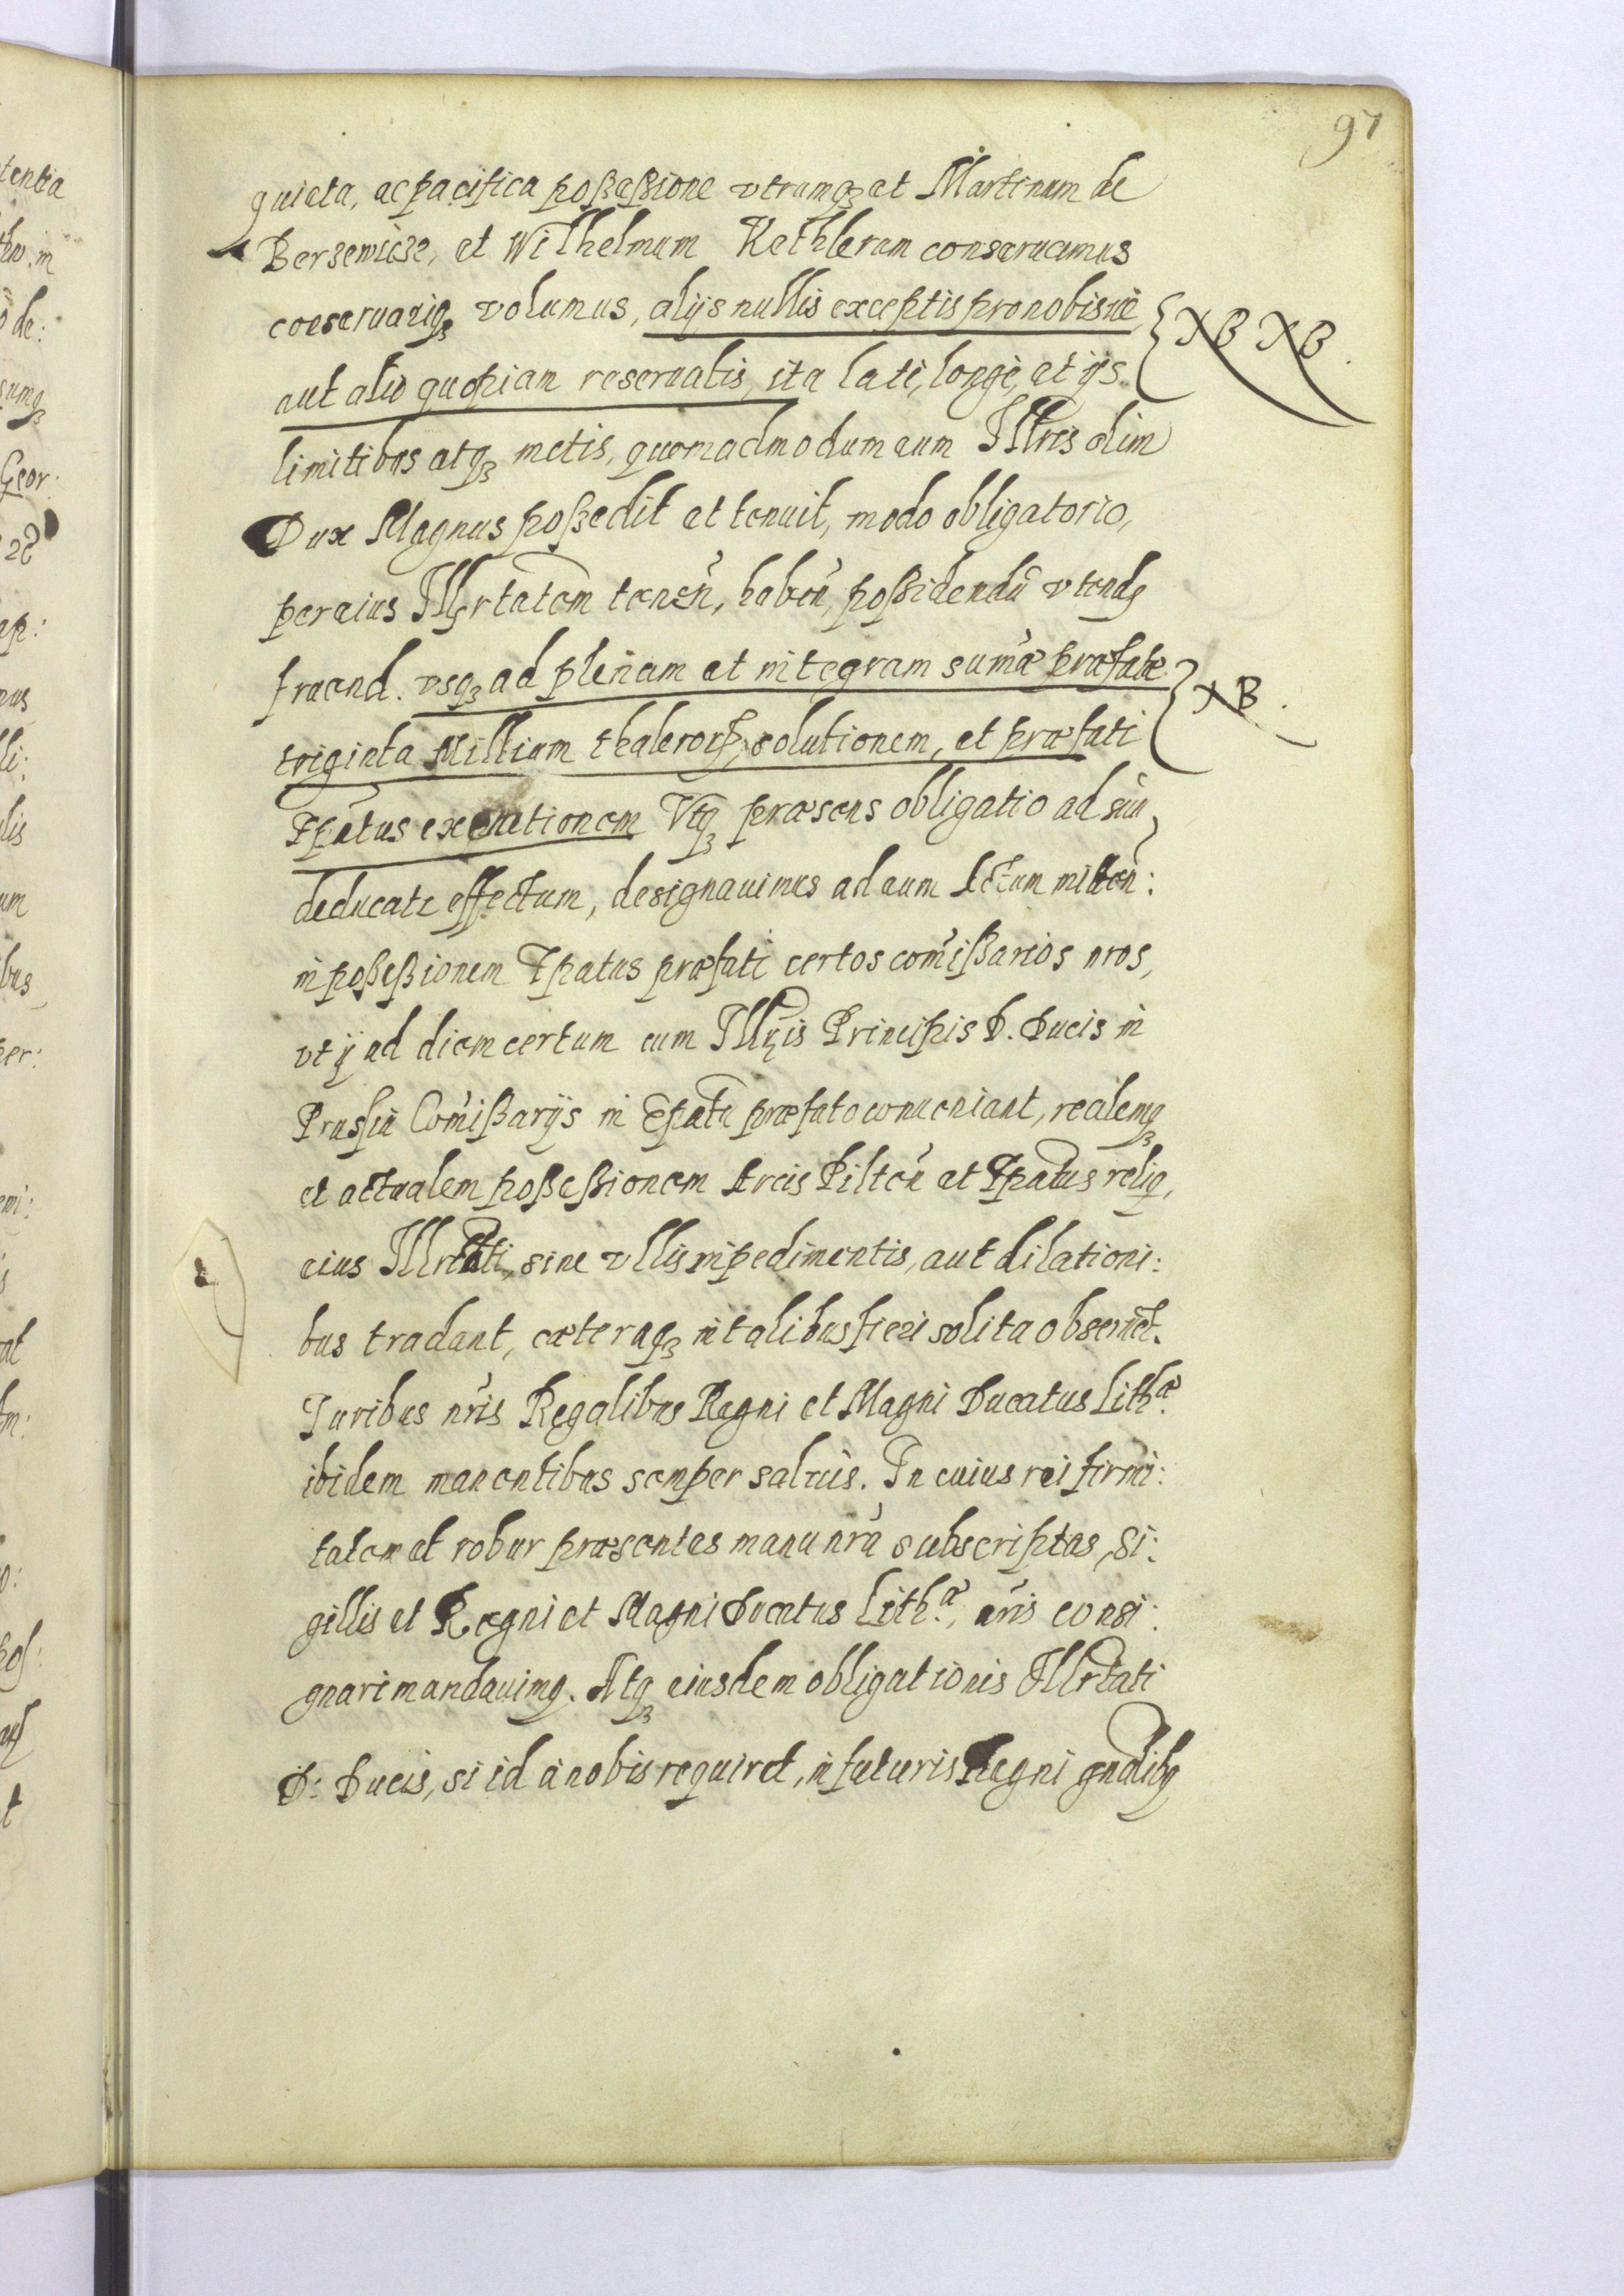 97
quieta, ac pacifica poßeßione vtrumqȝ et Martinum de
Berzewicze, et Wilhelmum Kethlerum conseruamus
coeseruariqȝ volumus, alijs nullis exceptis pro nobisue NB NB.
aut alio quopiam reseruatis, ita latè, longè, et ijs
limitibus atqȝ metis, quemadmodum eum Illris olim
Dux Magnus poßedit et tenuit, modo obligatorio,
per eius Illrtatem tenen, haben, poßidendũ vtend
fruend. vsqȝ ad plenam et integram sumæ præfatæ NB.
triginta Millium thaleror, solutionem, et præfati
Epatus exemtionem Vtqȝ præsens obligatio ad suu
deducatr effectum, designauimus ad eum actum mitten:
in poßeßionem Epatus præfati certos comißarios nros,
vt ij ad diem certum cum Illris Principis D. Ducis in
Prussia Comißarijs in Epatu præfato conueniant, realemqȝ
et actualem poßeßionem Arcis Pilten et Epatus reliq,
eius Illrtati, sine vllis impedimentis, aut dilationi:
bus tradant, cæteraqȝ in talibus fieri solita obseruēt.
Iuribus nris Regalibus Regni et Magni Ducatus Lith.æ
ibidem manentibus semper saluis. In cuius rei firmi:
tatem et robur præsentes manu nra subscriptas, Si:
gillis et Regni et Magni Ducatus Lith.æ, nris consi:
gnari mandauimq. Atqȝ eiusdem obligationis Illrtati
D: Ducis, si id à nobis requiret, in futuris Regni gnalibq